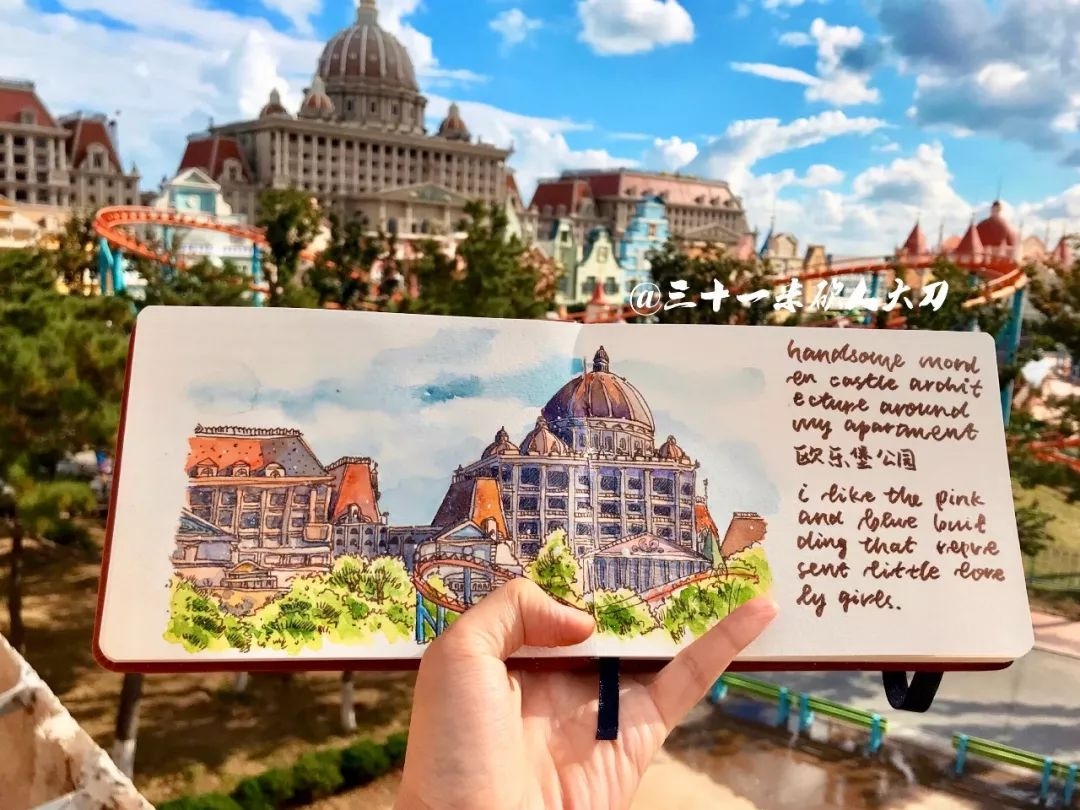 @三十一朱砂人大刀
handsome mord
en castle archit
ecture around
my apartment
欧乐堡公园
i like the pink
and blue buil
ding that repre
sent little love
ly girls.